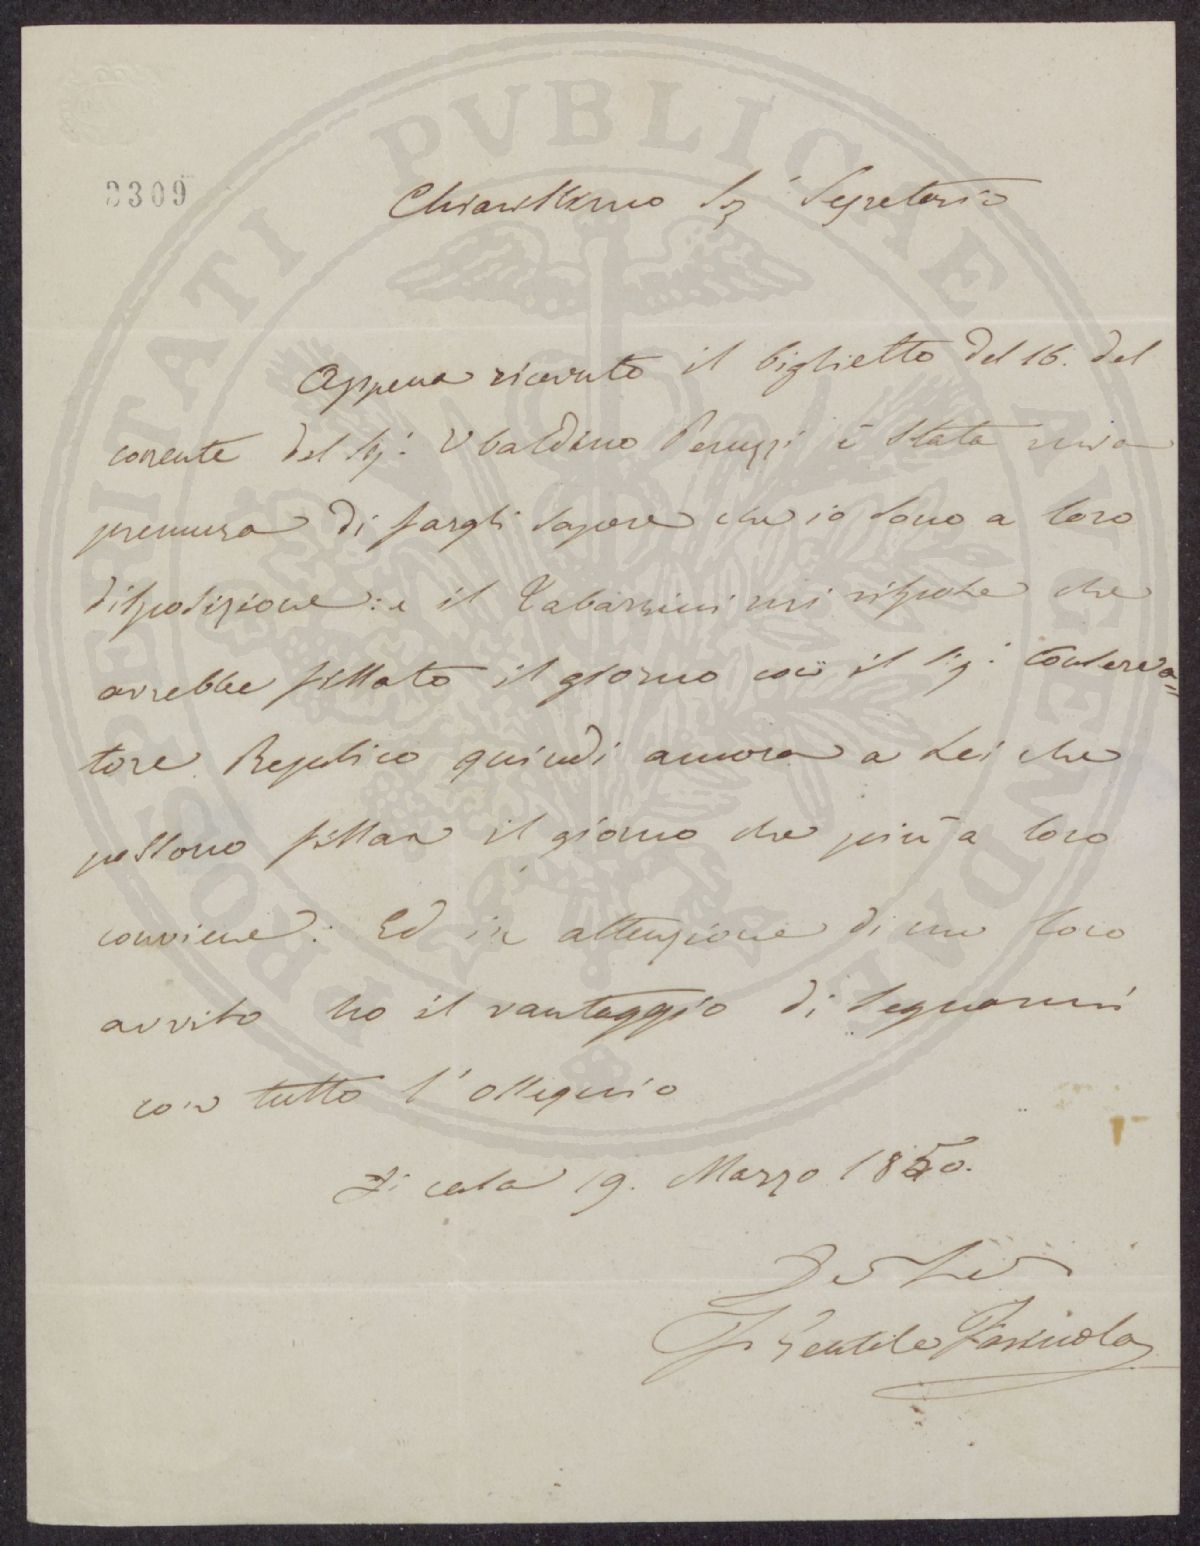 PROSPERITATI PVBLICAE AVGENDAE
3309
Chiarissimo Sig.r Segretario
Appena ricevuto il biglietto del 16. del
corrente del Sig.r Ubaldino Peruzzi è stata mia
premura di fargli sapere che io sono a loro
disposizione: e il Tabarrini mi rispose che
avrebbe fissato il giorno con il Sig.r Conserva=
tore Replico quindi ancora a Lei che
possono fissar il giorno che più a loro
conviene. Ed in attenzione di un loro
avviso ho il vantaggio di segnarmi
con tutto l'ossequio
Di casa 19. Marzo 1850.
Gentile Farinola